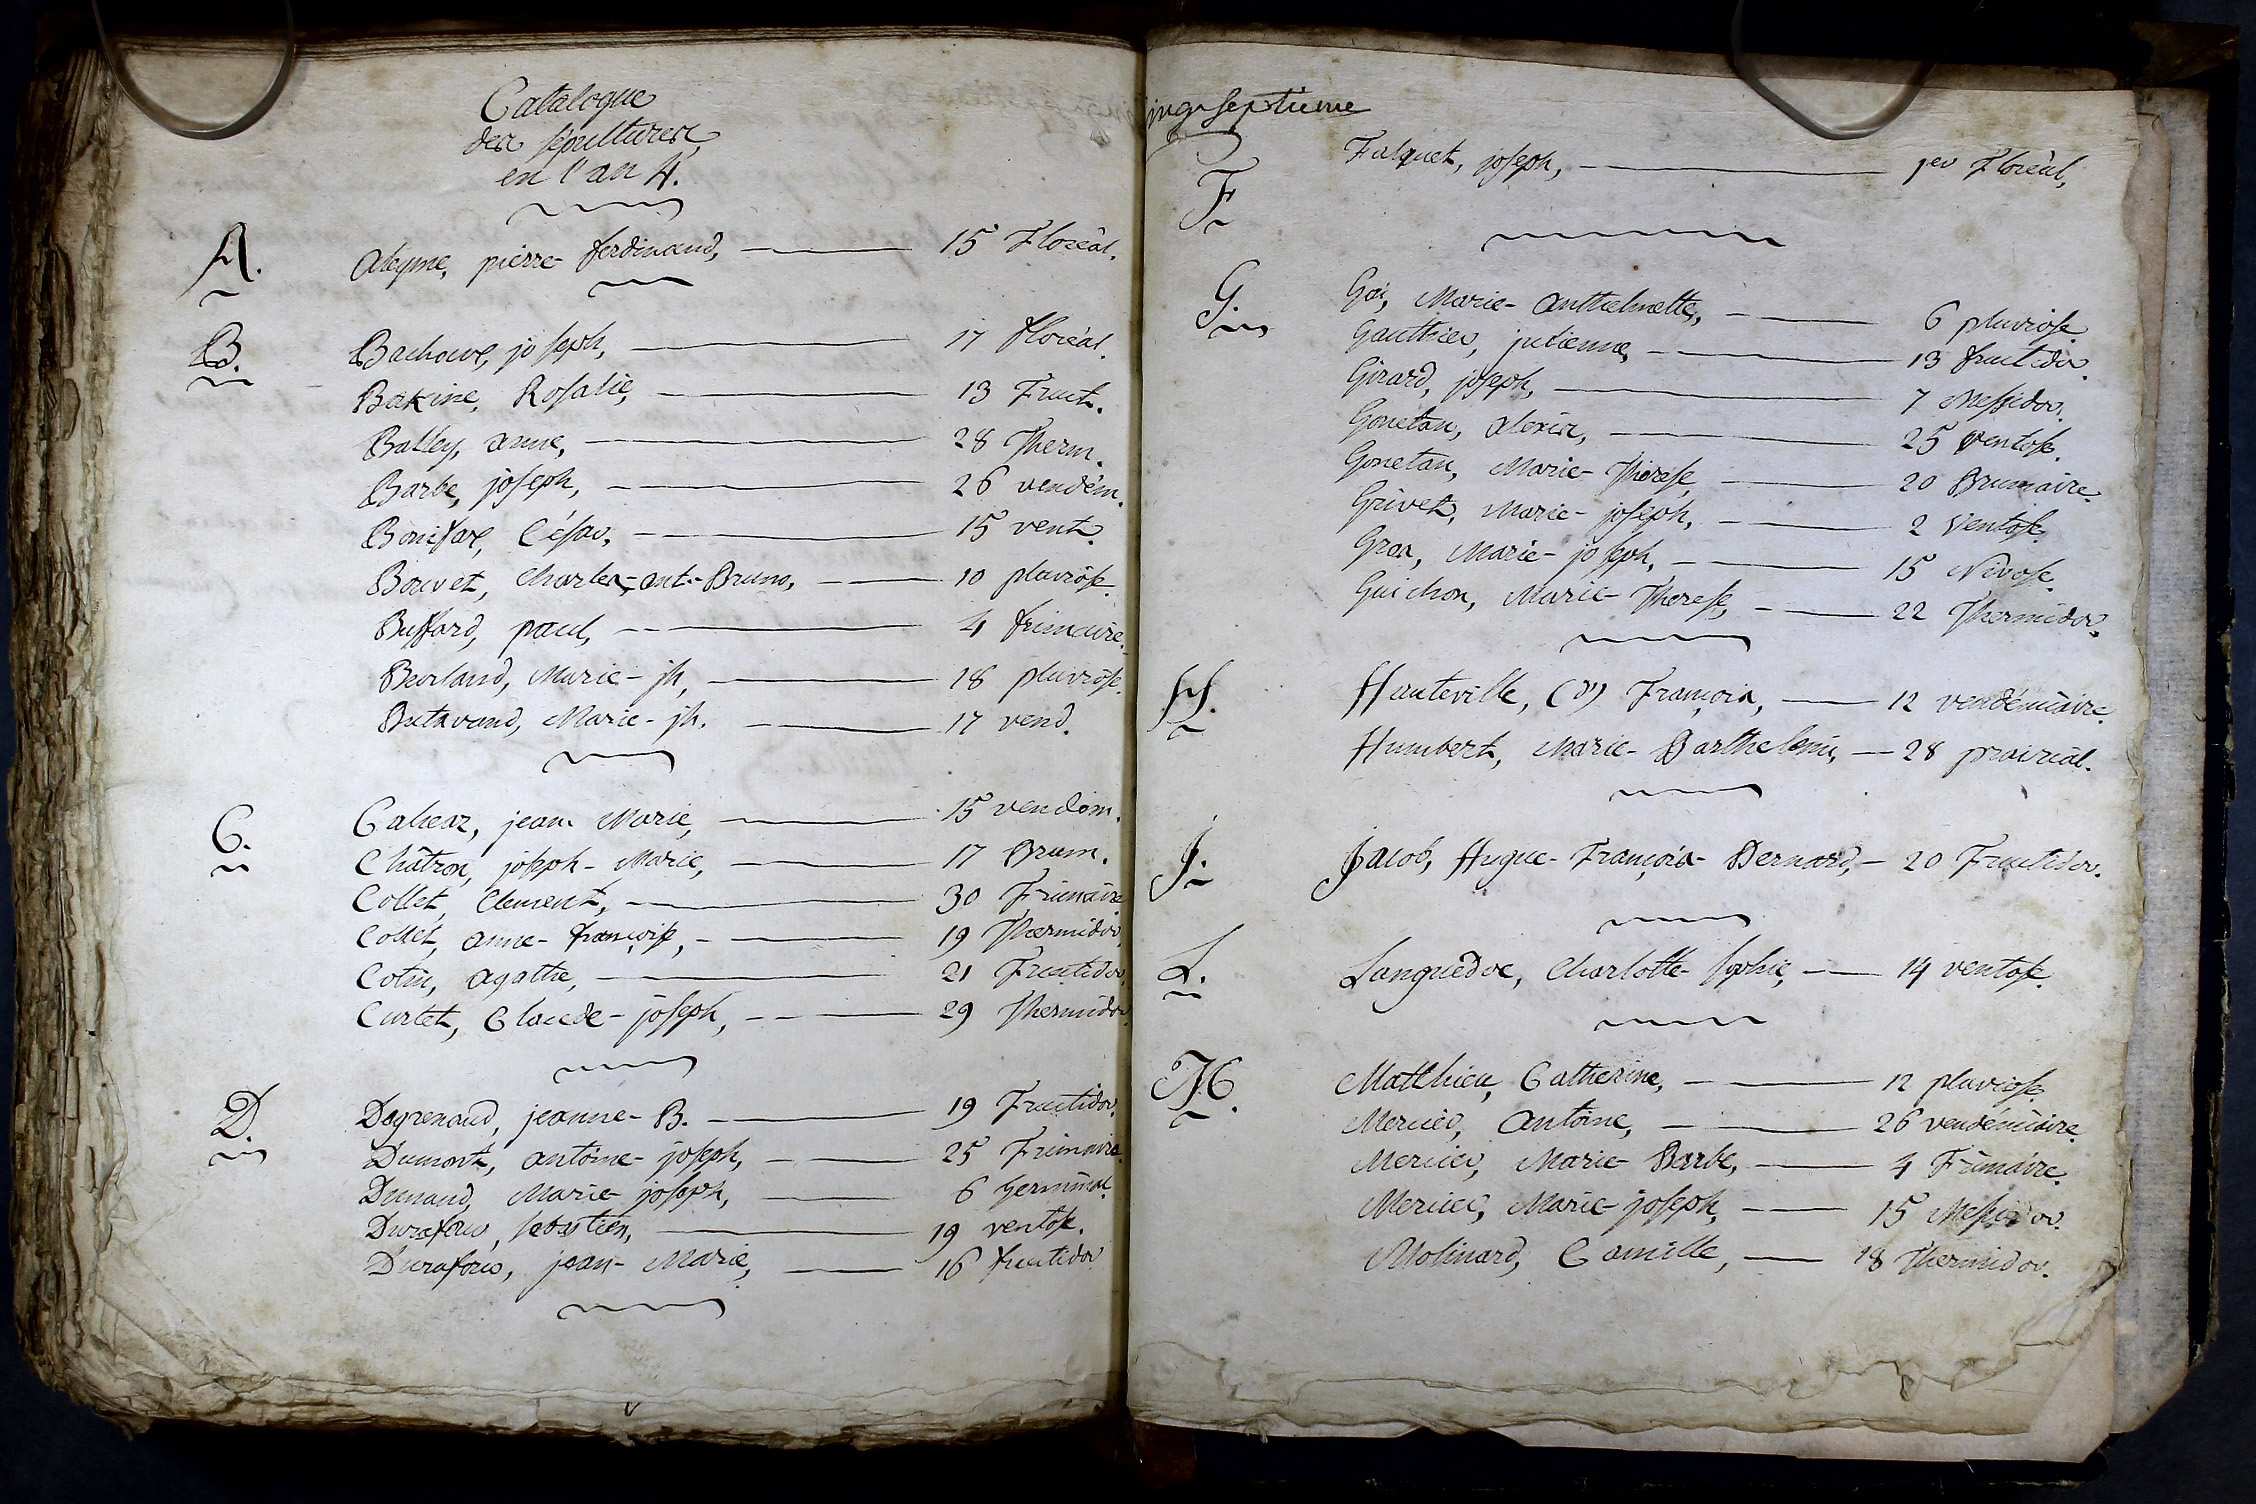 Catalogue
des sépultures
en l'an 4.
A. Aleyme, pierre-ferdinand, 15 Floréal.
B. Bachoux, joseph, 17 floréal.
Balkine, Rosalie, 13 Fruct.
Balley, anne, 28 Therm.
Barbe, joseph, 26 vendém.
Boniface, César, 15 vent.
Bouvet, Charles-ant.-Bruno, 10 pluviôse.
Buffard, paul, 4 frimaire.
Beorland, Marie-jh, 18 pluviôse.
Butavand, Marie-jh. 17 vend.
C. jean Marie, 15 vendém.
Châtron, joseph-Marie, 17 Brum.
Collet, Clement, 30 Frimaire
Collet, anne-françoise, 19 Thermidor,
Cotin, agathe, 21 Fructidor,
Curtet, Claude-joseph, 29 Thermidor.
D. Degrenaud, jeanne-B. 19 Fructidor.
Dumont, antoine-joseph, 25 Frimaire.
Dunand, Marie-joseph, 6 Germinal.
Durafour, sebastien, 19 ventôse.
Durafour, jean-Marie, 16 fructidor
ingt-septieme
F Falquet, joseph, 1er Floréal,
G. Goi, Marie-Anthelmette, 6 pluviose
Gauthier, julienne, 13 fructidor.
Girard, joseph, 7 Messidor.
Gonetan, alexis, 25 ventose.
Gonetan, Marie-Therese, 20 Brumaire.
Grivet, Marie-joseph, 2 Ventose.
Gros, Marie-joseph, 15 Nivose.
Guichon, Marie-Therese, 22 Thermidor.
H. Hauteville, (D) François, 12 vendémiaire.
Humbert, Marie-Barthelemi, 28 prairial.
J. Jacob, Hugue-François-Bernard, 20 Fructidor.
L. Languedoc, Charlotte-sophie, 14 ventose.
M. Matthieu, Catherine, 12 pluviose
Mercier, Antoine, 26 vendémiaire.
Mercier, Marie-Barbe, 4 Frimaire.
Mercier, Marie-joseph, 15 Messidor.
Molinard, Camille, 18 Thermidor.